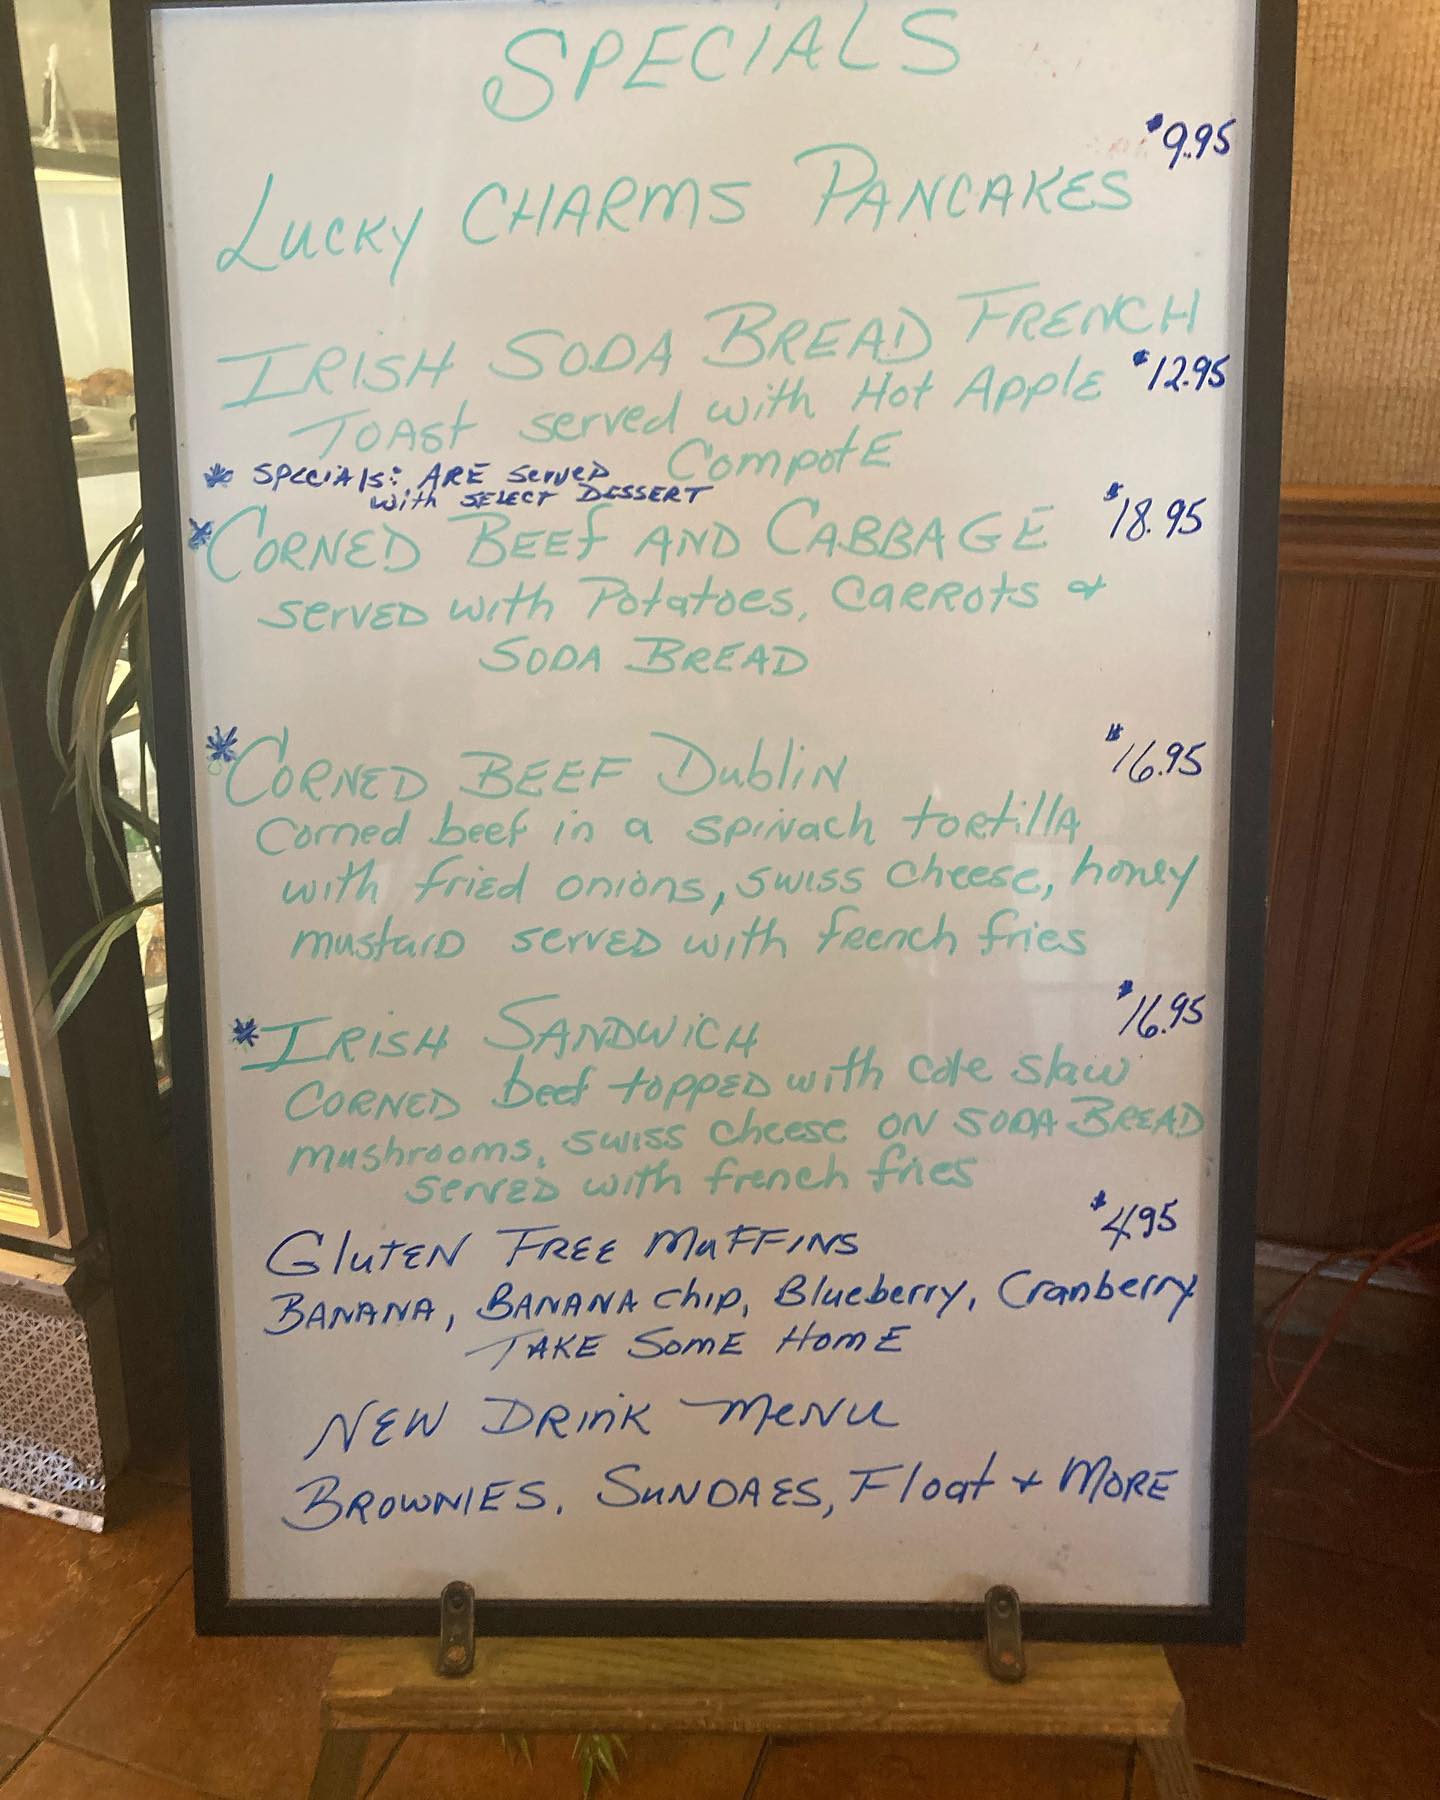 SPECIALS
$9.95
LUCKY CHARMS PANCAKES
IRISH SODA BREAD FRENCH
TOASt served with Hot APPlE $12.95
CompotE
* SPecials: ARE served
with SELECT DESSERT
*CORNED BEEf AND CABBAGE $18.95
SERVED with Potatoes, CARROts &
SODA BREAD
*CORNED BEEF DubliN $16.95
Corned beef in a spinach tortilla
with fried onions, swiss cheese, honey
mustard servED with french fries
*IRISH SANDWICH $16.95
CORNED beef topped with cole slaw
mushrooms, swiss cheese ON SODA BREAD
SERVED with french fries
$4.95
GLUTEN FREE MuFFINS
BANANA, BANANA chip, Blueberry, Cranberry
TAKE SomE HomE
NEW DRINK MENU
BROWNIES, SUNDAES, Float + MORE